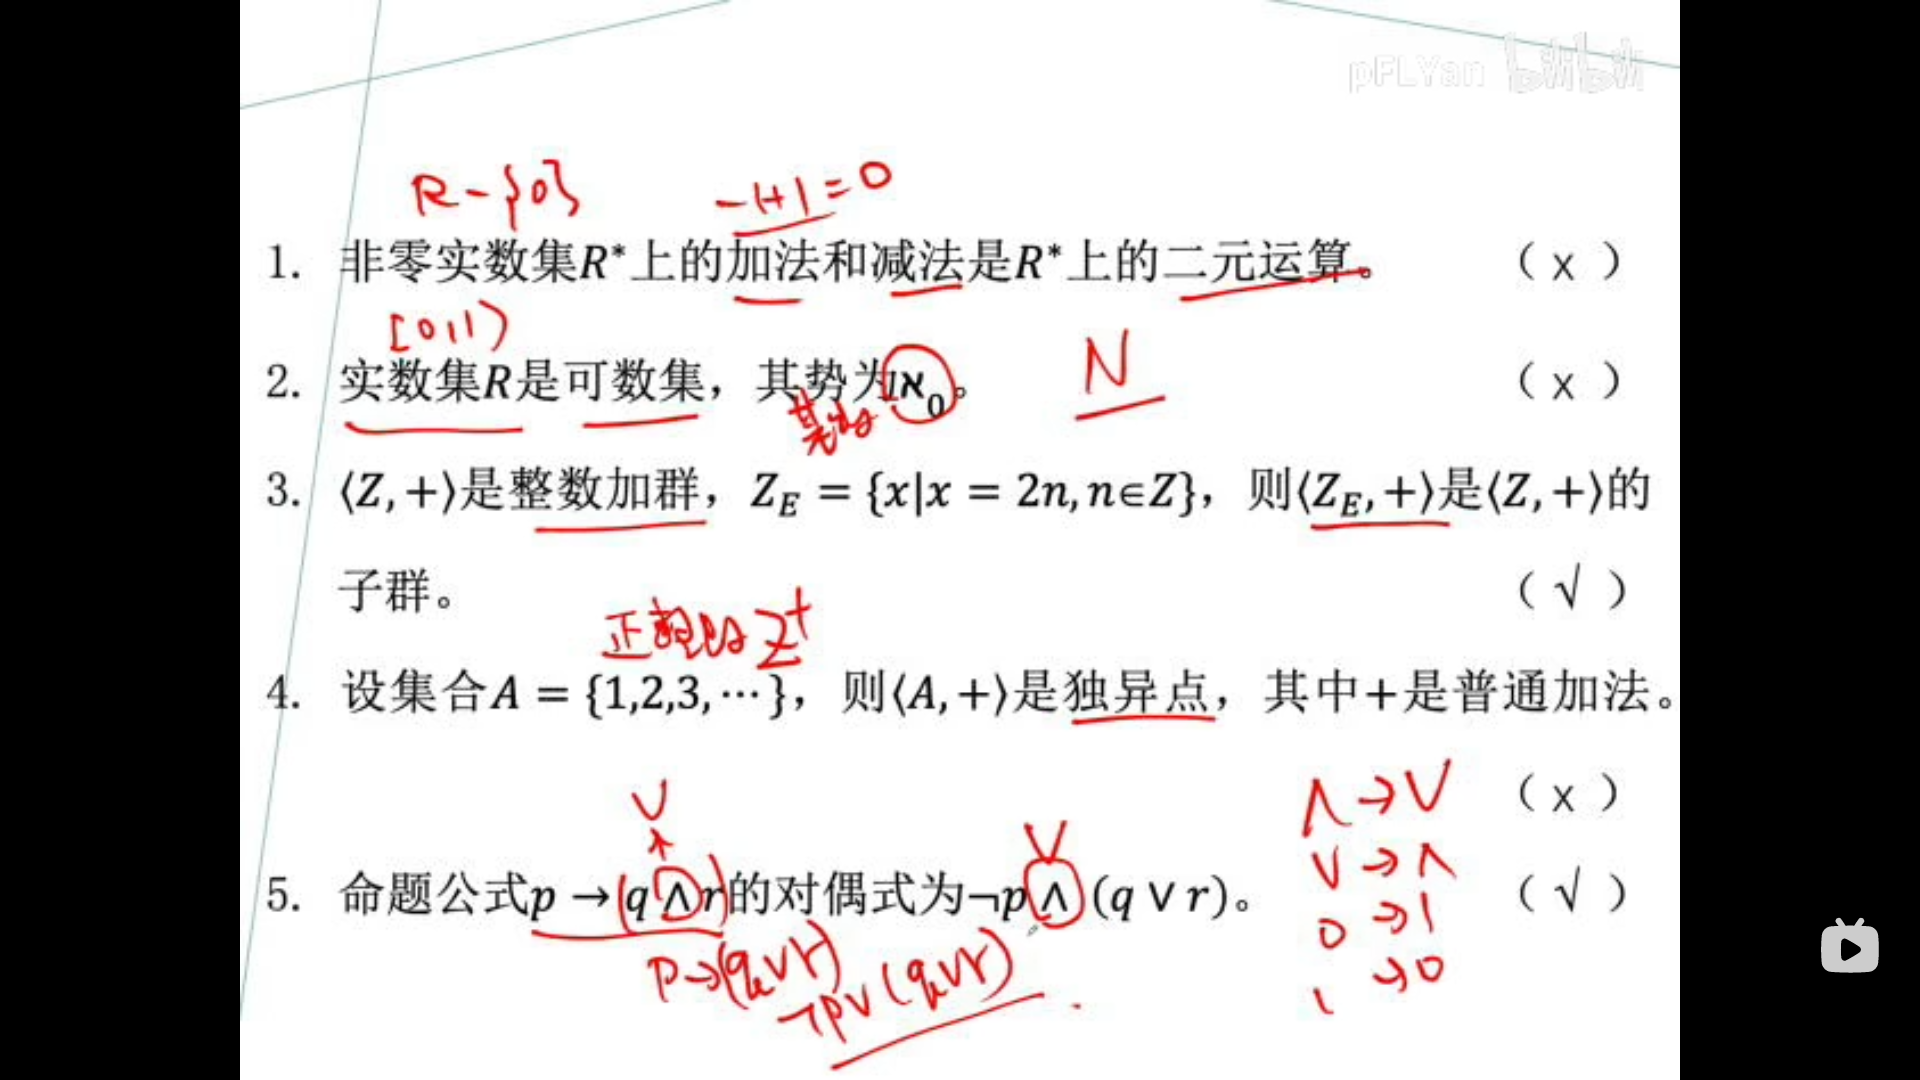 pFLYan bilibili
R-{0} -1+1=0
1. 非零实数集R*上的加法和减法是R*上的二元运算。 （ x ）
[0,1)
2. 实数集R是可数集，其势为ℵ₀。 N （ x ）
基数
3. ⟨Z,+⟩是整数加群，Z_E = {x|x = 2n, n∈Z}，则⟨Z_E,+⟩是⟨Z,+⟩的
子群。 （ √ ）
正整数 Z⁺
4. 设集合A = {1,2,3,⋯}，则⟨A,+⟩是独异点，其中+是普通加法。
（ x ）
∧→∨
∨ ∨
∨→∧
5. 命题公式p → (q ∧ r)的对偶式为¬p ∧ (q ∨ r)。 （ √ ）
0→1
p→(q∨r)
¬p∨(q∨r)
1→0